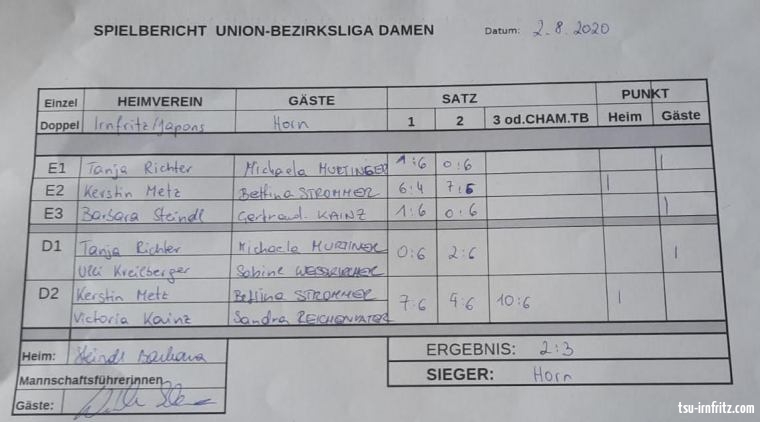 SPIELBERICHT UNION-BEZIRKSLIGA DAMEN Datum: 2.8.2020
Einzel HEIMVEREIN GÄSTE SATZ PUNKT
Doppel Irnfritz/Japons Horn 1 2 3 od.CHAM.TB Heim Gäste
E1 Tanja Richter Michaela MURTINGER 1:6 0:6 |
E2 Kerstin Metz Bettina STROMMER 6:4 7:5 |
E3 Barbara Steindl Gertraud KAINZ 1:6 0:6 |
D1 Tanja Richter Michaela 0:6 2:6 |
Ulli Kreilberger Sabine
D2 Kerstin Metz Bettina STROMMER 7:6 4:6 10:6 |
Victoria Kainz Sandra
Heim: Steindl Barbara ERGEBNIS: 2:3
Mannschaftsführerinnen SIEGER: Horn
Gäste:
tsu-irnfritz.com